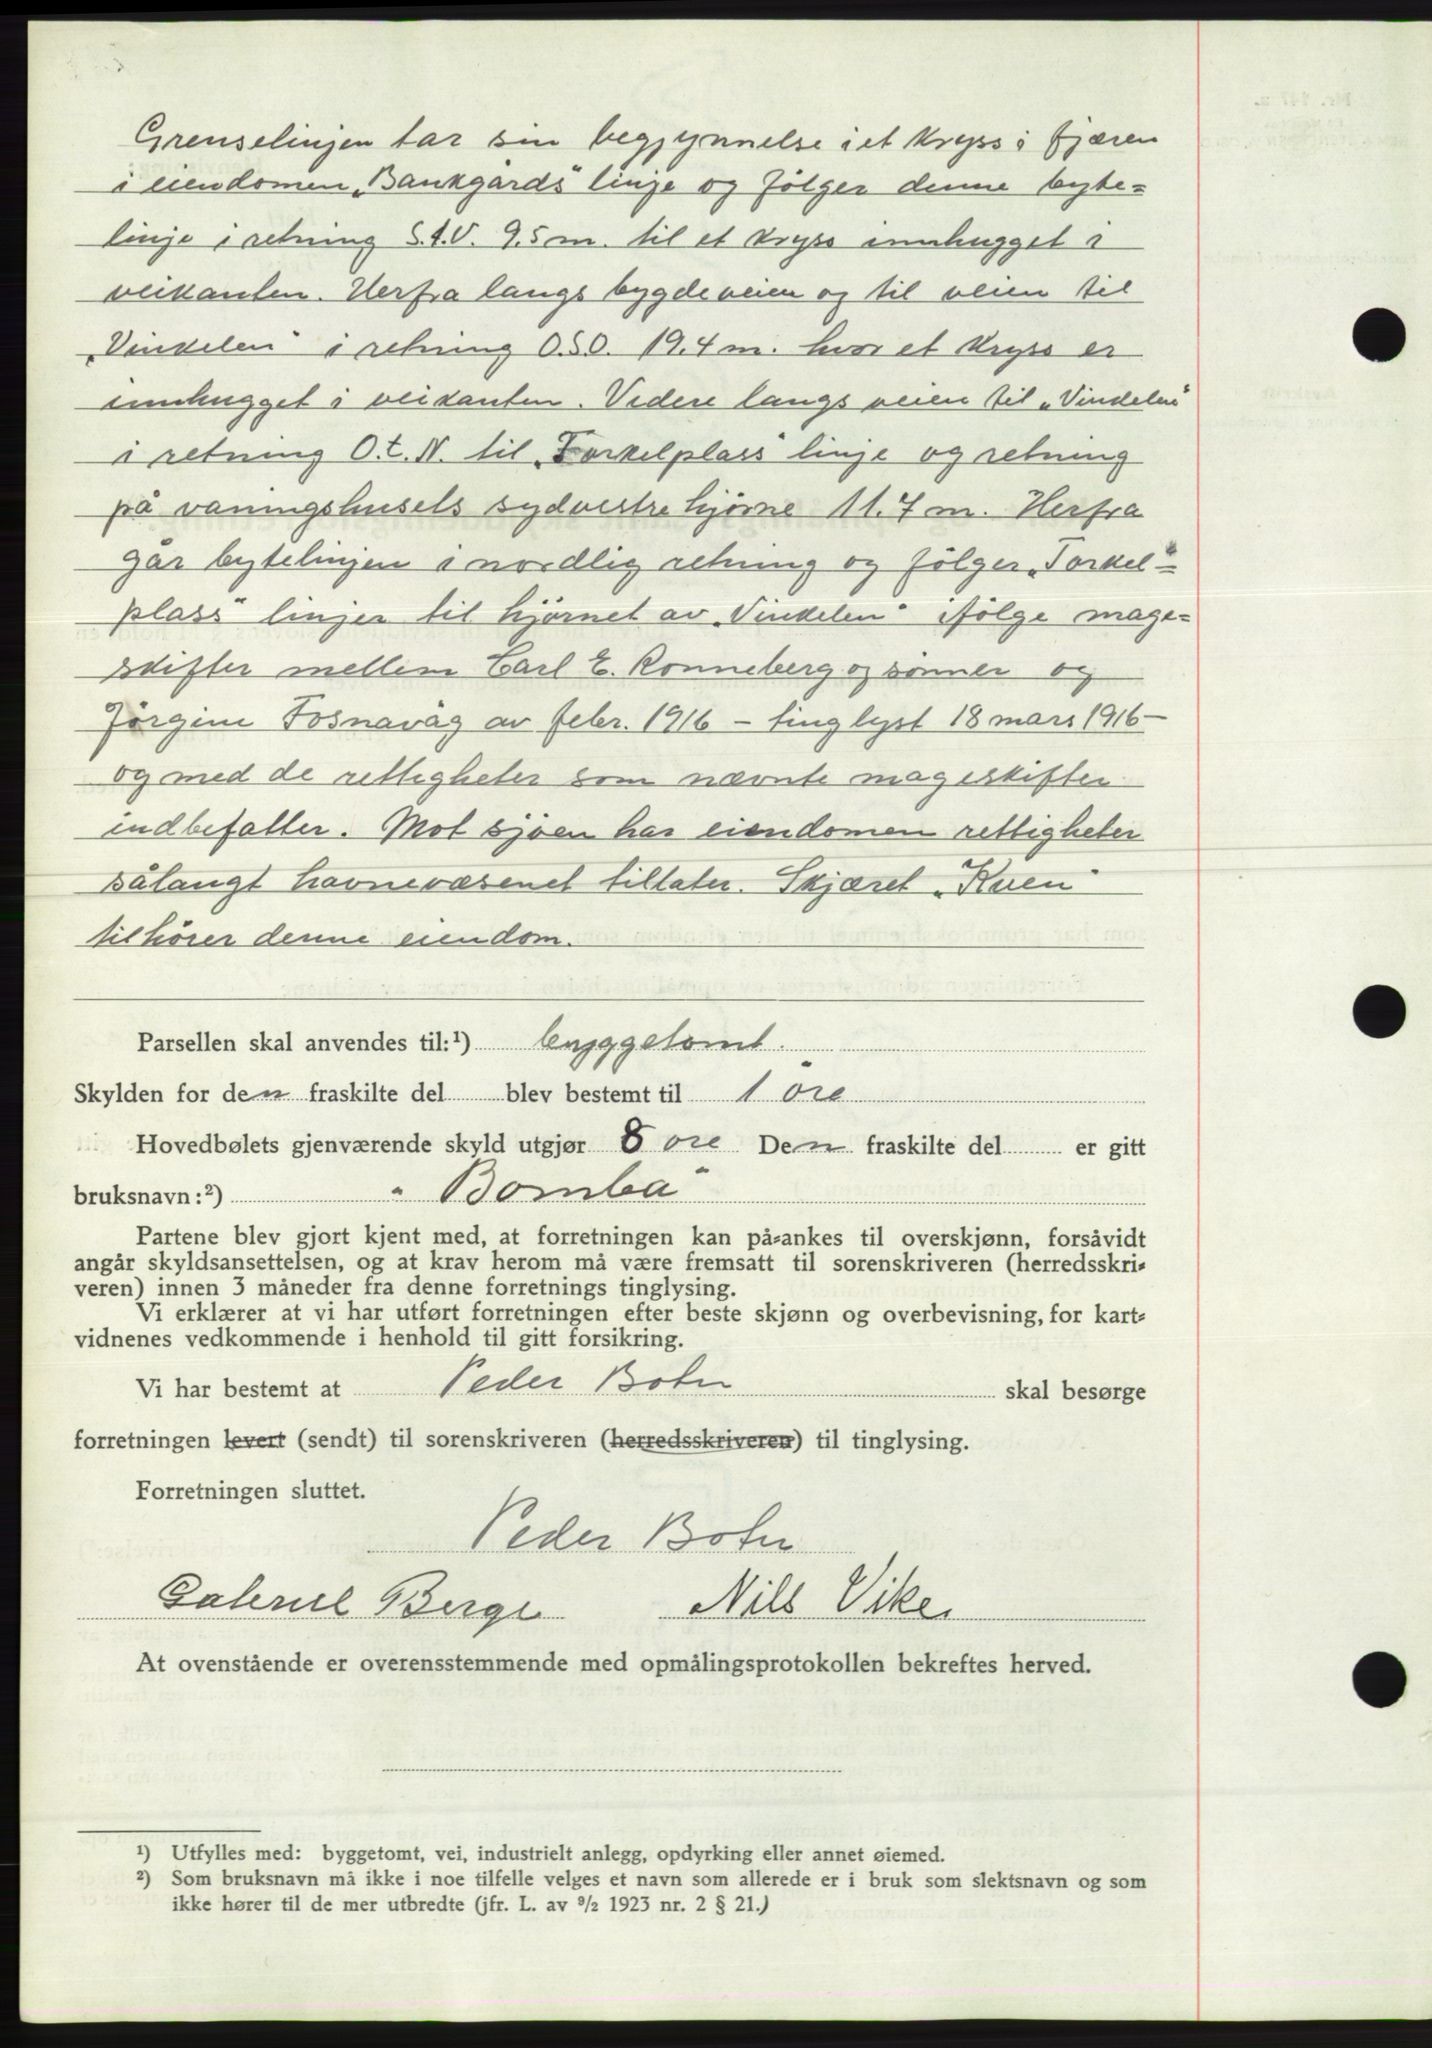 Grenselinjen tar sin begynnelse i et kryss i fjæren
i eiendomen „Bankgårds" linje og følger denne byte=
linje i retning S.t.V. 9.5 m. til et kryss innhugget i
veikanten. Herfra langs bygdeveien og til veien til
„Vinkelen" i retning O.S.O. 19.4 m. hvor et kryss er
innhugget i veikanten. Videre langs veien til „Vinkelen"
i retning O.t.N. til „Torkelplass" linje og retning
på vaningshusets sydvestre hjørne 11.7 m. Herfra
går bytelinjen i nordlig retning og følger „Torkel=
plass" linjer til hjørnet av „Vinkelen" ifølge mage=
skifter mellem Carl E. Rønneberg og sønner og
Jørgine Fosnavåg av febr. 1916 – tinglyst 18 mars 1916 –
og med de rettigheter som nævnte mageskifter
indbefatter. Mot sjøen har eiendomen rettigheter
sålangt havnevæsenet tillater. Skjæret „Kuen"
tilhører denne eiendom.
Parsellen skal anvendes til:¹) byggetomt.
Skylden for den fraskilte del blev bestemt til 1 øre
Hovedbølets gjenværende skyld utgjør 8 øre Den fraskilte del er gitt
bruksnavn:²) „Bomba"
Partene blev gjort kjent med, at forretningen kan på=ankes til overskjønn, forsåvidt
angår skyldsansettelsen, og at krav herom må være fremsatt til sorenskriveren (herredsskri=
veren) innen 3 måneder fra denne forretnings tinglysing.
Vi erklærer at vi har utført forretningen efter beste skjønn og overbevisning, for kart=
vidnenes vedkommende i henhold til gitt forsikring.
Vi har bestemt at Peder Botn skal besørge
forretningen levert (sendt) til sorenskriveren (herredsskriveren) til tinglysing.
Forretningen sluttet.
Peder Botn
Gabriel Berge Nils Vike.
At ovenstående er overensstemmende med opmålingsprotokollen bekreftes herved.
¹) Utfylles med: byggetomt, vei, industrielt anlegg, opdyrking eller annet øiemed.
²) Som bruksnavn må ikke i noe tilfelle velges et navn som allerede er i bruk som slektsnavn og som
ikke hører til de mer utbredte (jfr. L. av 9/2 1923 nr. 2 § 21.)